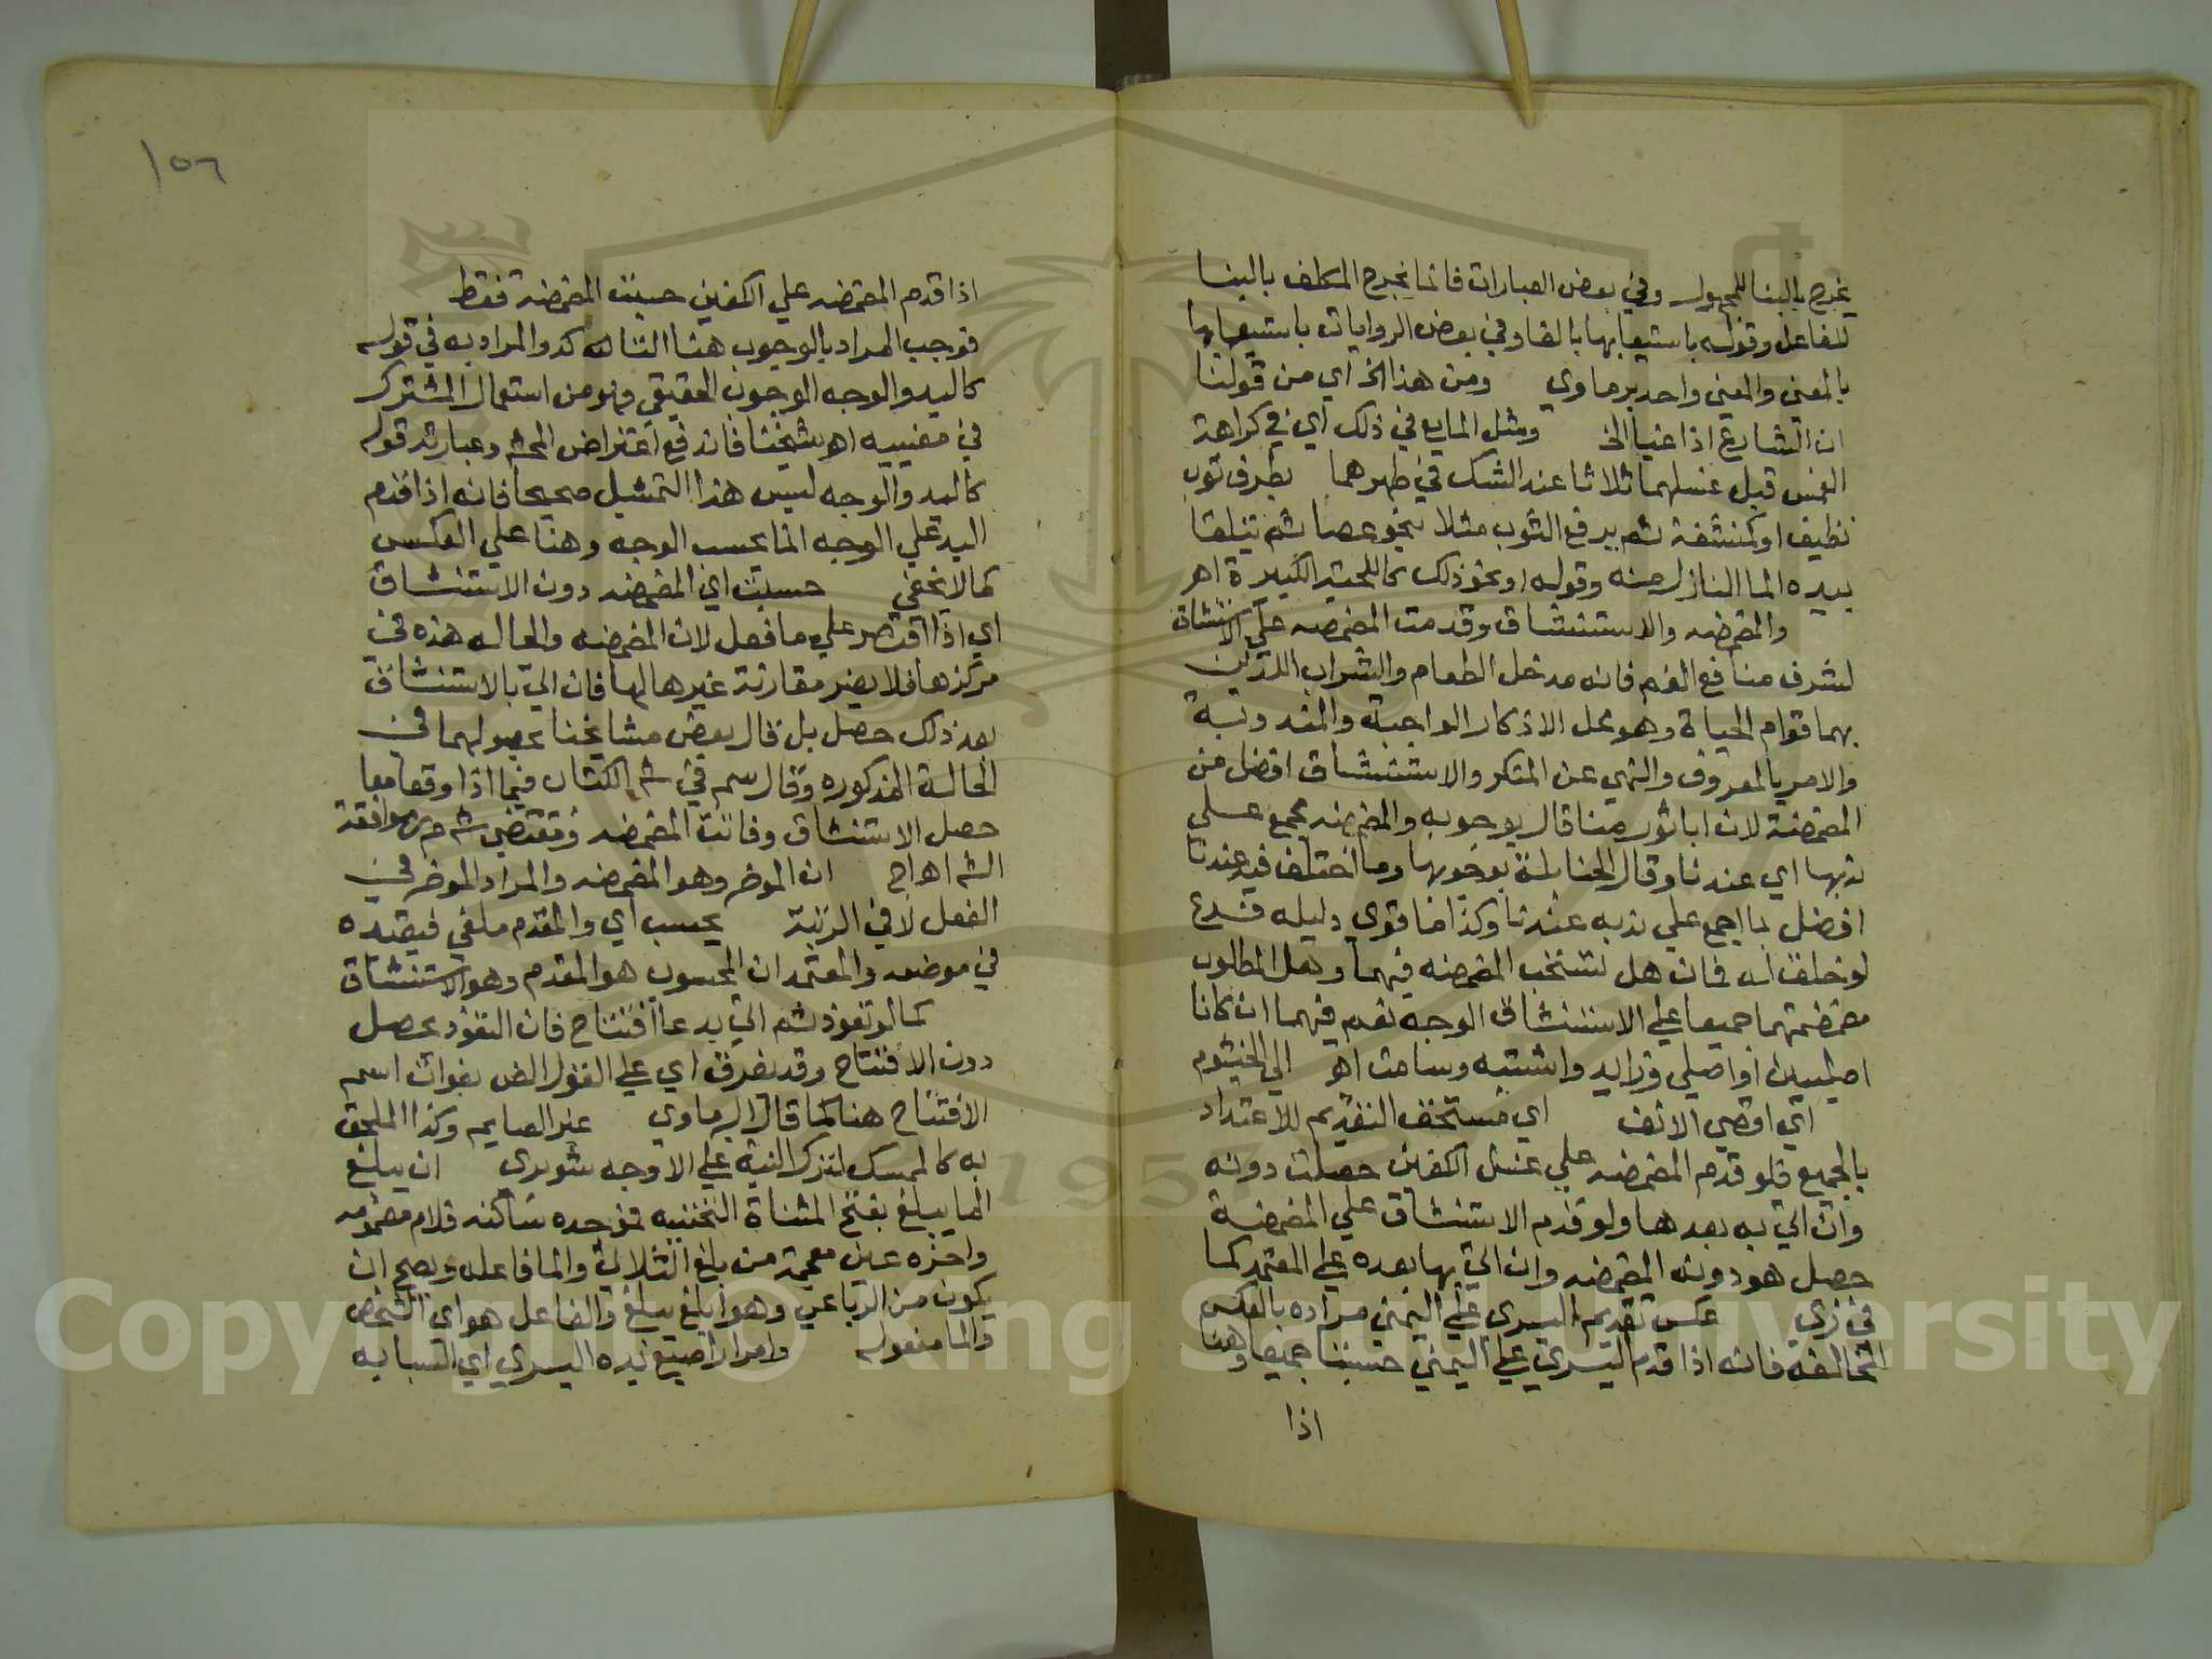 يخرج بالبنا للمجهول وفي بعض العبارات فانما يخرج المكلف بالبنا
للفاعل وقوله باستيعابها بالفا وفي بعض الروايات باستيعابها
بالمعني والمعني واحد برماوي ومن هذا الخ اي من قولنا
ان الشارع اذا غيا الخ ومثل المايع في ذلك اي في كراهة
الغمس قبل غسلهما ثلاثا عند الشك في طهرهما بطرف ثوب
نظيف او كمنشفة ثم يرفع الثوب مثلا بنحو عصا ثم يتلقا
بيده الما النازل منه وقوله او نحو ذلك كاللحية الكبيرة اهر
والمضمضه والاستنشاق وقدمت المضمضه علي الاستنشاق
لشرف منافع الفم فانه مدخل الطعام والشراب اللذين
بهما قوام الحياة وهو محل الاذكار الواجبة والمندوبة
والامر بالمعروف والنهي عن المنكر والاستنشاق افضل من
المضمضة لان اباثور منا قال بوجوبه والمضمضه مجمع علي
ندبها اي عندنا وقال الحنابلة بوجوبها وما اختلف فيه عندنا
افضل مما اجمع علي ندبه عندنا وكذا ما قوي دليله فرع
لو خلق له فمان هل تستحب المضمضه فيهما وهل المطلوب
مضمضتهما جميعا علي الاستنشاق الوجه نعم فيهما ان كانا
اصليين او اصلي وزايد واشتبه وسامت اهر الي الخيشوم
اي اقصي الانف اي مستحق التقديم للاعتداد
بالجميع فلو قدم المضمضه علي غسل الكفين حصلت دونه
وان اتي به بعدها ولو قدم الاستنشاق علي المضمضة
حصل هو دونه المضمضه وان اتي بها بعده علي المعتمد كما
في زي عكس تقديم اليسري علي اليمني مراده بالعكس
المخالفه فانه اذا قدم اليسري علي اليمني حسبتا جميعا وهنا
اذا
١٥٦
اذا قدم المضمضه علي الكفين حسبت المضمضة فقط
فوجب المراد بالوجوب هنا التاكد والمراد به في قوله
كاليد والوجه الوجوب الحقيقي فهو من استعمال المشترك
في معنييه اهر شيخنا فاندفع اعتراض المحشي وعبارته قوله
كاليد والوجه ليس هذا التمثيل صحيحا فانه اذا قدم
اليد علي الوجه انما يحسب الوجه وهنا علي العكس
كما لا يخفي حسبت اي المضمضه دون الاستنشاق
اي اذا اقتصر علي ما فعل لان المضمضه والحاله هذه في
مركزها فلا يضر مقارنة غيرها لها فان اتي بالاستنشاق
بعد ذلك حصل بل قال بعض مشايخنا بحصولهما في
الحالة المذكوره وقال سم في شر الكتاب فيما اذا وقعا معا
حصل الاستنشاق وفاتت المضمضه ومقتضي شر مر موافقة
الشر اهر اج ان الموخر وهو المضمضه والمراد الموخر في
الفعل لا في الرتبة يحسب اي والمقدم ملغي فيعيده
في موضعه والمعتمد ان المحسوب هو المقدم وهو الاستنشاق
كما لو تعوذ ثم اتي بدعا افتتاح فان التعوذ يحصل
دون الافتتاح وقد يفرق اي علي القول الض بفوات اسم
الافتتاح هنا كما قاله البرماوي غير الصايم وكذا الملحق
به كالممسك لترك النية علي الاوجه شوبري ان يبلغ
الما يبلغ بفتح المثناة التحتيه فموحده ساكنه فلام مضمومه
واخره غين معجمة من بلغ الثلاثي والما فاعله ويصح ان
يكون من الرباعي وهو ابلغ يبلغ والفاعل هو اي الشخص
والما مفعوله وامرار اصبع يده اليسري اي السبابه